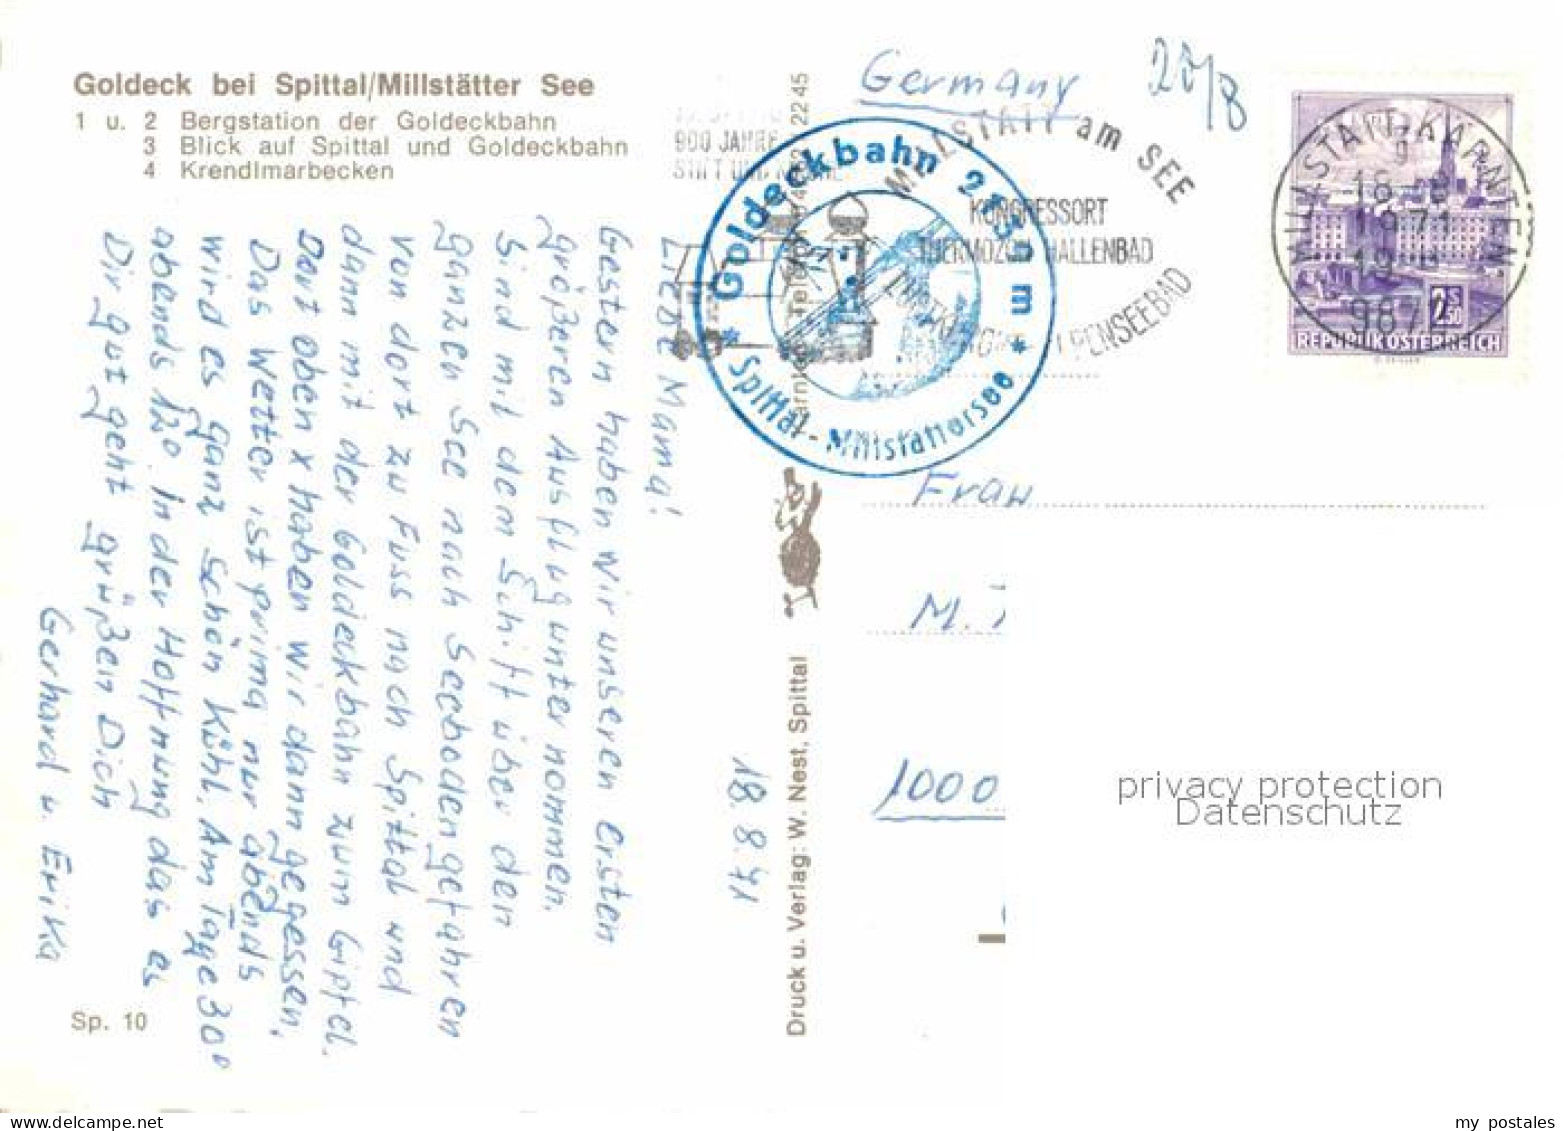 Goldeck bei Spittal/Millstätter See
1 u. 2 Bergstation der Goldeckbahn
3 Blick auf Spittal und Goldeckbahn
4 Krendlmarbecken
Liebe Mama!
Gestern haben wir unseren ersten
größeren Ausflug unternommen.
Sind mit dem Schiff über den
ganzen See nach Seeboden gefahren
von dort zu Fuss nach Spittal und
dann mit der Goldeckbahn zum Gipfel.
Dort oben x haben wir dann gegessen.
Das Wetter ist prima nur abends
wird es ganz schön kühl. Am Tage 30°
abends 12°. In der Hoffnung das es
Dir gut geht grüßen Dich
Gerhard u. Erika
18.8.71
Sp. 10
Druck u. Verlag: W. Nest, Spittal
22 45
Germany
20/8
900 JAHRE
STIFT UND
MILLSTATT am SEE
KONGRESSORT
THERMOZON HALLENBAD
ALPENSEEBAD
Goldeckbahn
m
* Spittal - Millstättersee *
MILLSTATT, KÄRNTEN
18.-8
1971
REPUBLIK ÖSTERREICH
2 S 50
Frau
M.
1000
privacy protection
Datenschutz
my postales